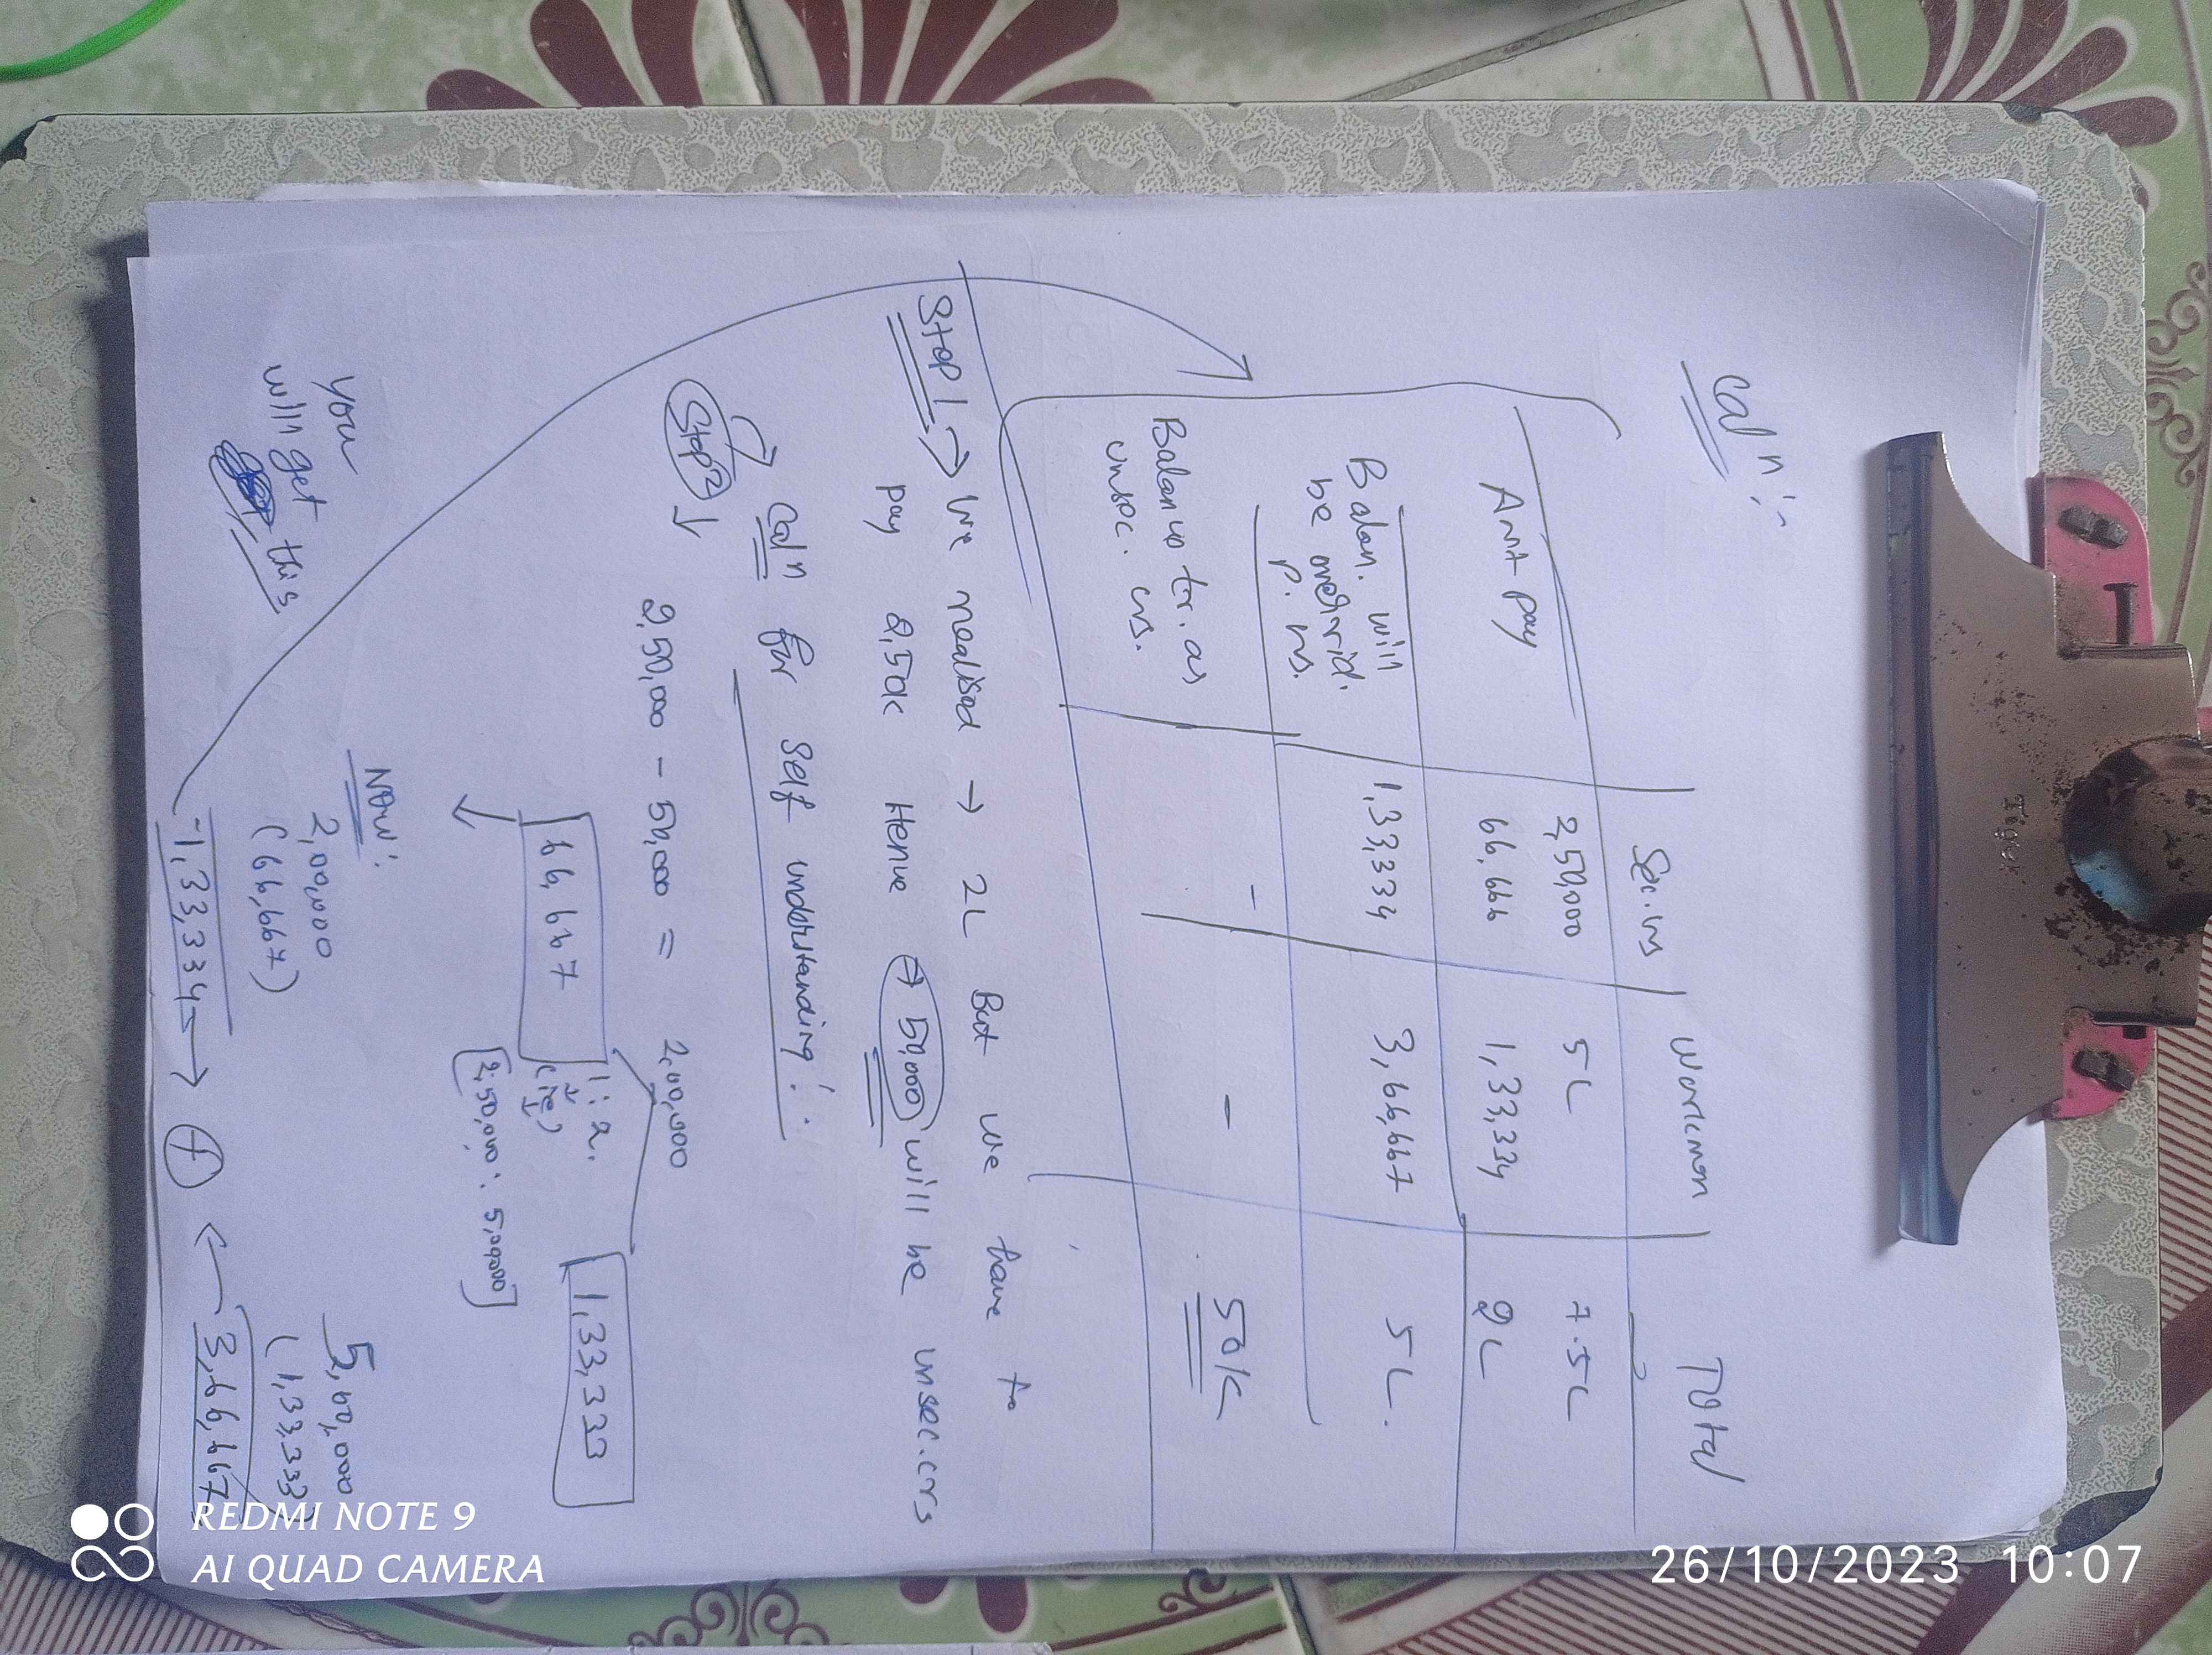 Calⁿ :-
Sec. crs Workmen Total
2,50,000 5L 7.5L
Amt pay 66,666 1,33,334 2L
Balan. will
be overrid. 1,33,334 3,66,667 5L.
P. crs.
tr. as
unsec. crs. - - 50K
Step 1 → We realised → 2L But we have to
pay 2,50K Hence → 50,000 will be unsec. crs
Calⁿ for self understanding :-
Step 2 ↓
2,50,000 - 50,000 = 2,00,000
66,667 1:2. 1,33,333
(ie)
[2,50,000 : 5,00,000]
Now :
you 2,00,000 5,00,000
will get (66,667) (1,33,333)
this 1,33,334 → + ← 3,66,667
Tiger
REDMI NOTE 9
AI QUAD CAMERA
26/10/2023 10:07